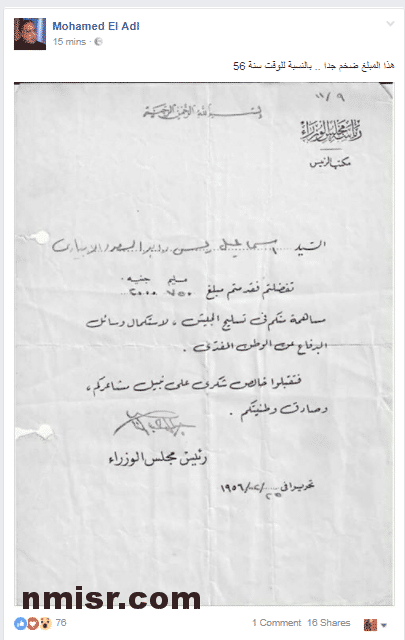 Mohamed El Adl
15 mins ·
هذا المبلغ ضخم جدا .. بالنسبة للوقت سنة 56
بسم الله الرحمن الرحيم
١١/٩
رئاسة مجلس الوزراء
مكتب الرئيس
السيد / اسماعيل يس
مليم جنيه
تفضلتم فقدمتم مبلغ ٧٥٠ ٢٠٠٠
مساهمة منكم فى تسليح الجيش ، لاستكمال وسائل
الدفاع عن الوطن المفدى .
فتقبلوا خالص شكرى على نبيل مشاعركم ،
وصادق وطنيتكم .
رئيس مجلس الوزراء
تحريرا فى ١٩٥٦/
٢٥
nmisr.com
76
1 Comment 16 Shares